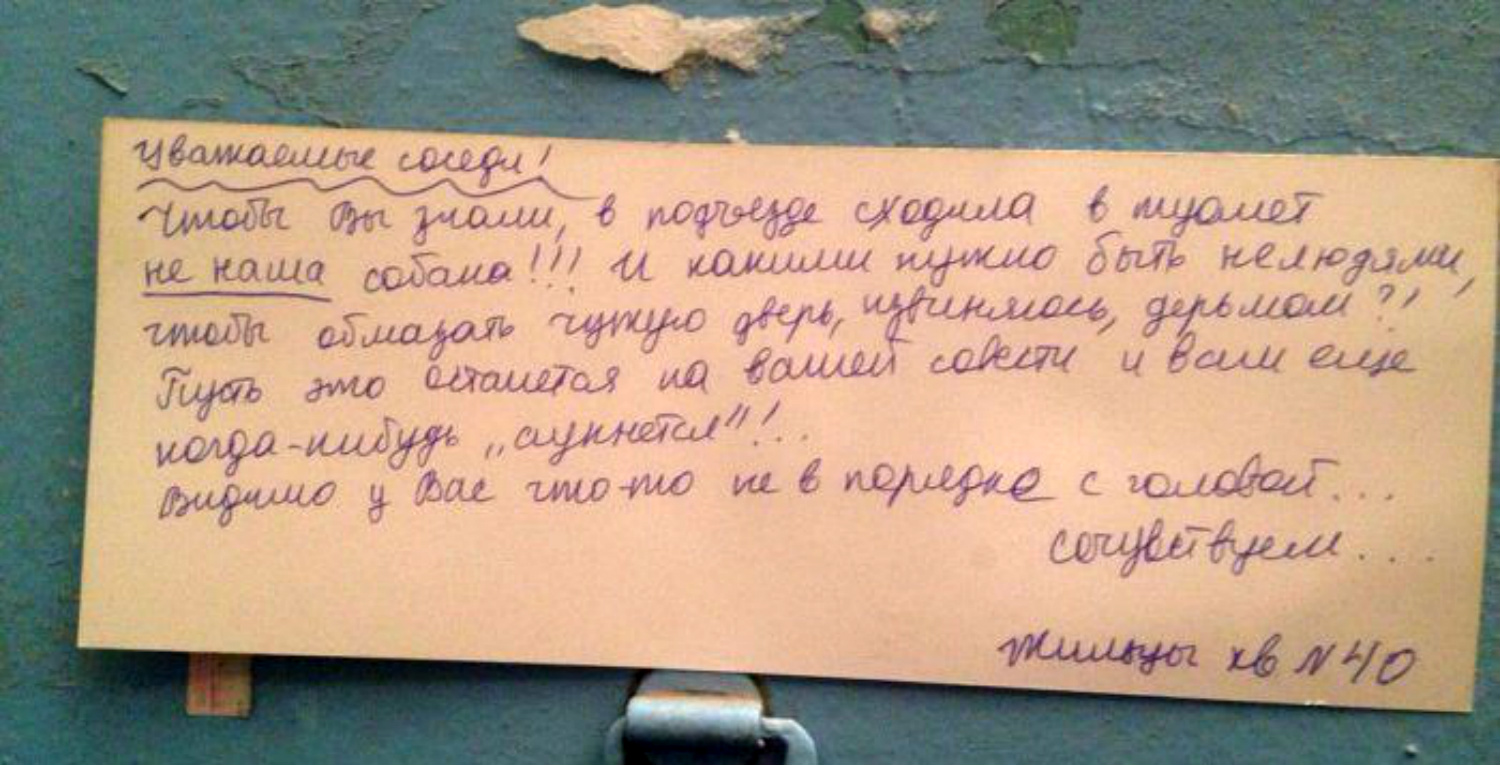 Уважаемые соседи!
Чтобы Вы знали, в подъезде сходила в туалет
не наша собака!!! И какими нужно быть нелюдями,
чтобы обмазать чужую дверь, извиняюсь, дерьмом?!
Пусть это останется на вашей совести и вам еще
когда-нибудь „аукнется"!..
Видимо у Вас что-то не в порядке с головой...
сочувствуем....
Жильцы кв N 40